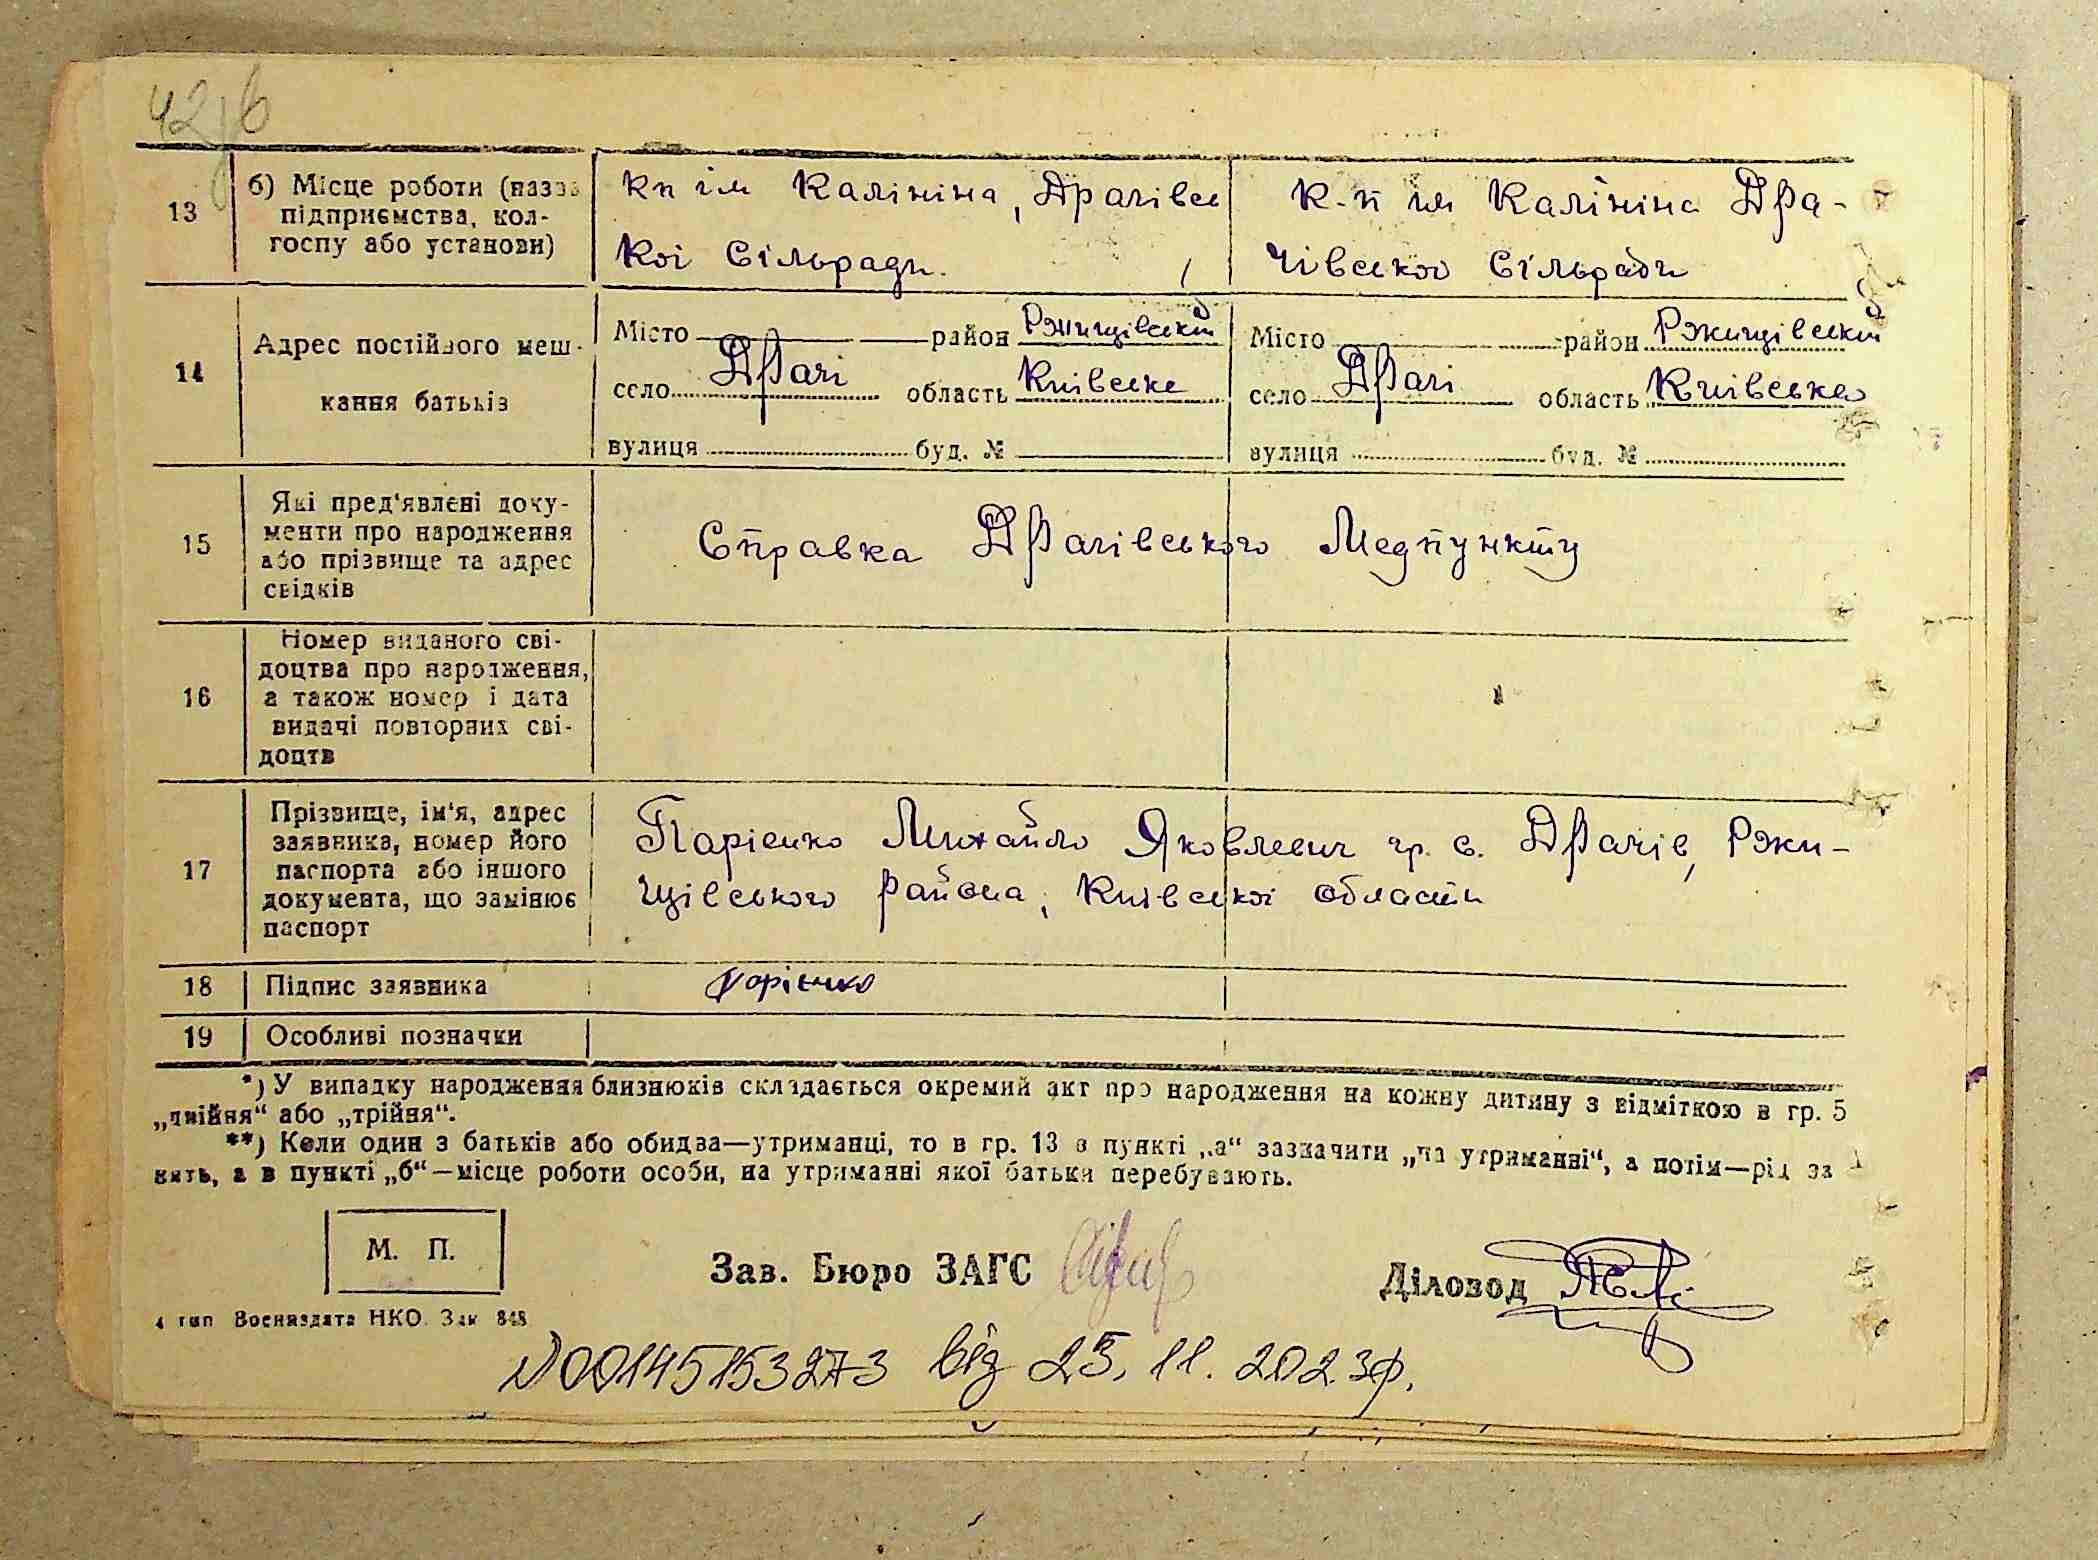 42зв
13
б) Місце роботи (назва
підприємства, кол-
госпу або установи)
Кп ім Калініна, Драчівсь
кої Сільради.
К-п ім Калініна Дра-
чівської Сільради
14
Адрес постійного меш-
кання батьків
Місто район Ржищівський
село Драчі область Київська
вулиця буд. №
Місто район Ржищівський
село Драчі область Київська
вулиця буд. №
15
Які пред'явлені доку-
менти про народження
або прізвище та адрес
свідків
Справка Драчівського Медпункту
16
Номер виданого сві-
доцтва про народження,
а також номер і дата
видачі повторних сві-
доцтв
17
Прізвище, ім'я, адрес
заявника, номер його
паспорта або іншого
документа, що замінює
паспорт
Парієнко Михайло Яковлевич гр. с. Драчів, Ржи-
щівського района, Київської области
18 Підпис заявника
Парієнко
19 Особливі позначки
*) У випадку народження близнюків складається окремий акт про народження на кожну дитину з відміткою в гр. 5
„двійня“ або „трійня“.
**) Коли один з батьків або обидва—утриманці, то в гр. 13 в пункті „а“ зазначити „на утриманні“, а потім—рід за
нять, а в пункті „б“—місце роботи особи, на утриманні якої батьки перебувають.
М. П.
Зав. Бюро ЗАГС
Діловод
4 тип Воениздата НКО. Зак 848
N00145153273 від 25.11.2023р.